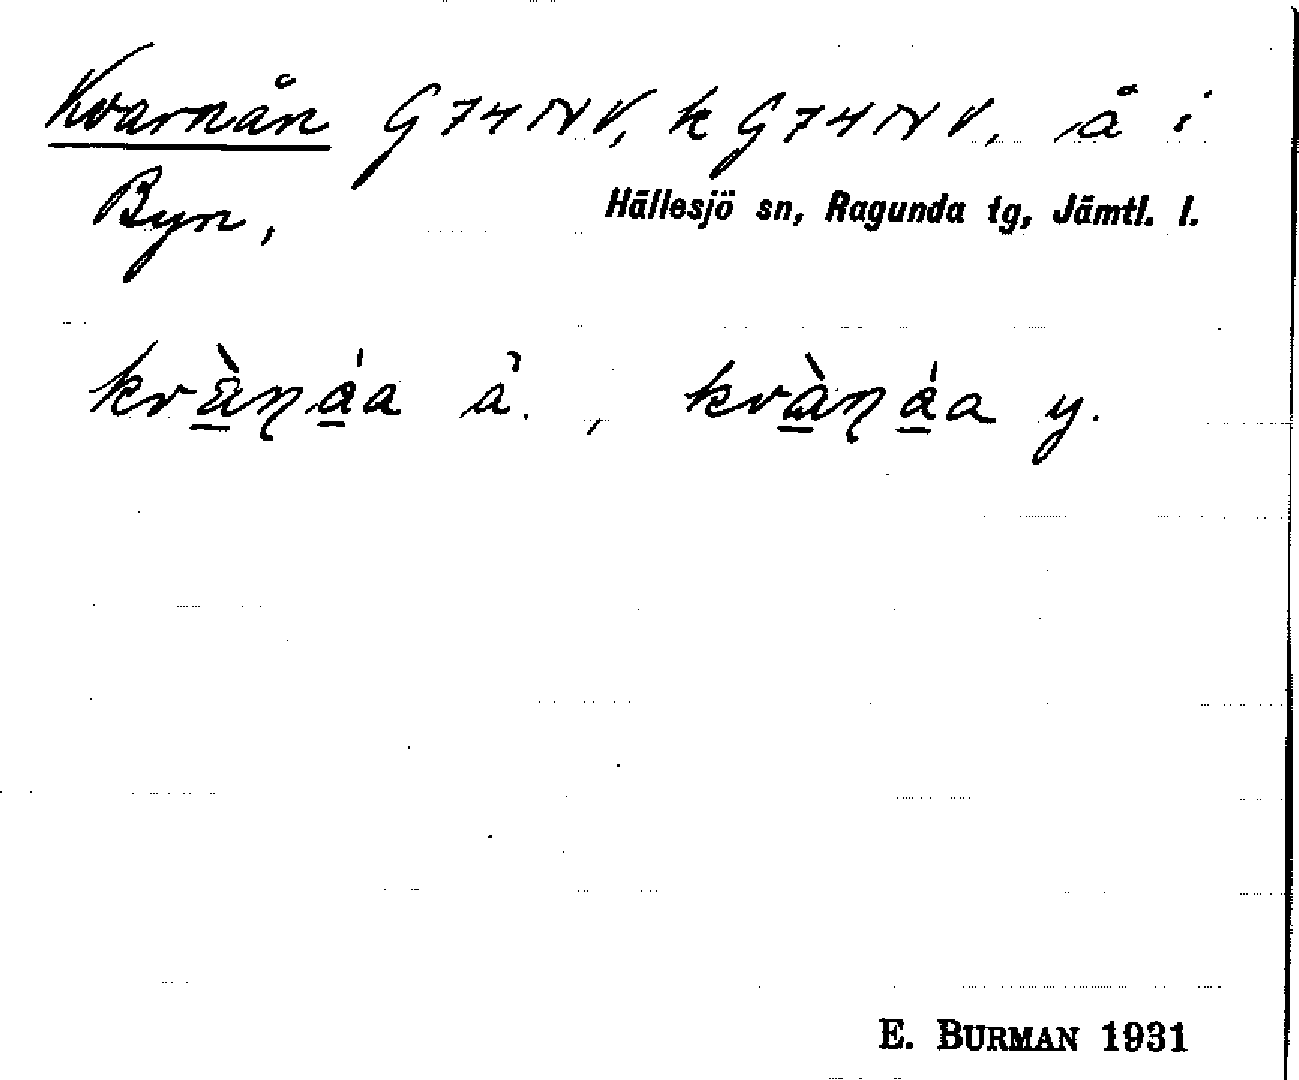 Kvarnån G74NV, k G74NV. å i
Byn, Hällesjö sn, Ragunda tg, Jämtl. l.
kvàṇáa å. , kvàṇáa y.
E. BURMAN 1931